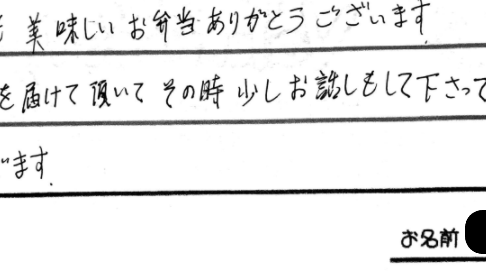 美味しいお弁当ありがとうございます
を届けて頂いてその時少しお話しもして下さって
います.
お名前